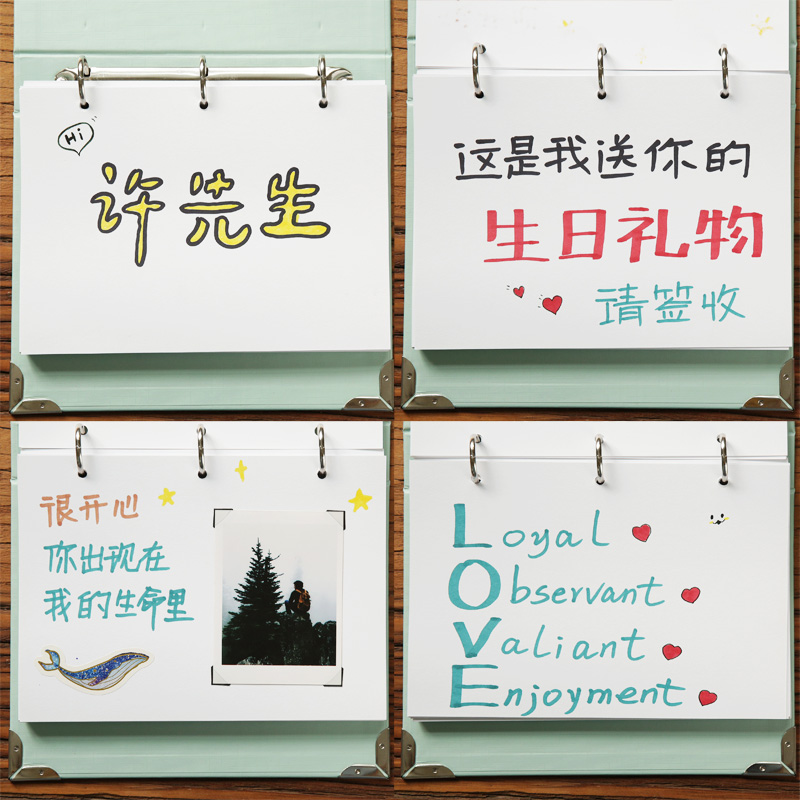 Hi
许先生
这是我送你的
生日礼物
请签收
很开心
你出现在
我的生命里
Loyal
Observant
Valiant
Enjoyment